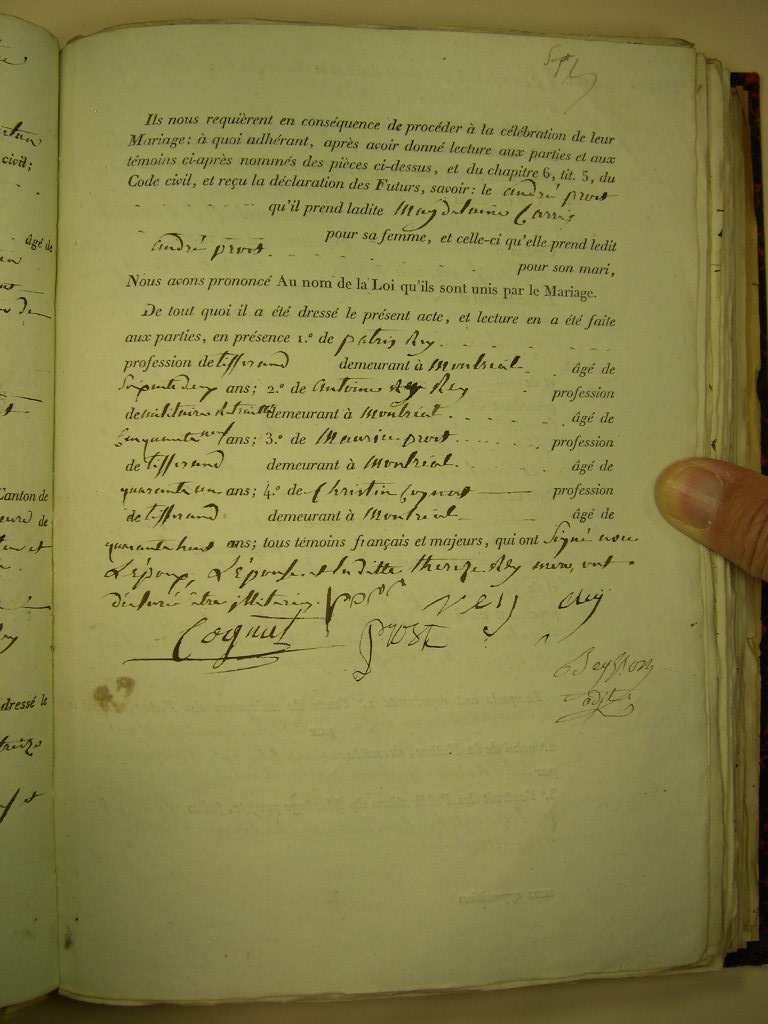 Ils nous requièrent en conséquence de procéder à la célébration de leur
Mariage : à quoi adhérant, après avoir donné lecture aux parties et aux
témoins ci-après nommés des pièces ci-dessus, et du chapitre 6, tit. 5, du
Code civil, et reçu la déclaration des Futurs, savoir : le andré prost
qu'il prend ladite Magdelaine Carris
pour sa femme, et celle-ci qu'elle prend ledit
andré prost
pour son mari,
Nous avons prononcé Au nom de la Loi qu'ils sont unis par le Mariage.
De tout quoi il a été dressé le présent acte, et lecture en a été faite
aux parties, en présence 1.º de patris Rey
profession de tisserand demeurant à Montréal âgé de
soixante deux ans ; 2.º de antoine Rey profession
de militaire retraitté demeurant à Montréal âgé de
cinquante neuf ans ; 3.º de Maurice prost profession
de tisserand demeurant à Montréal âgé de
quarante un ans ; 4.º de Christin Cognat profession
de tisserand demeurant à Montréal âgé de
quarante huit ans ; tous témoins français et majeurs, qui ont signé
L'époux, L'épouse et laditte thereze Rey mere, ont
déclaré être illiterés.
rey Rey
Cognat prost
adjt
âgé de
civil ;
Canton de
dressé le